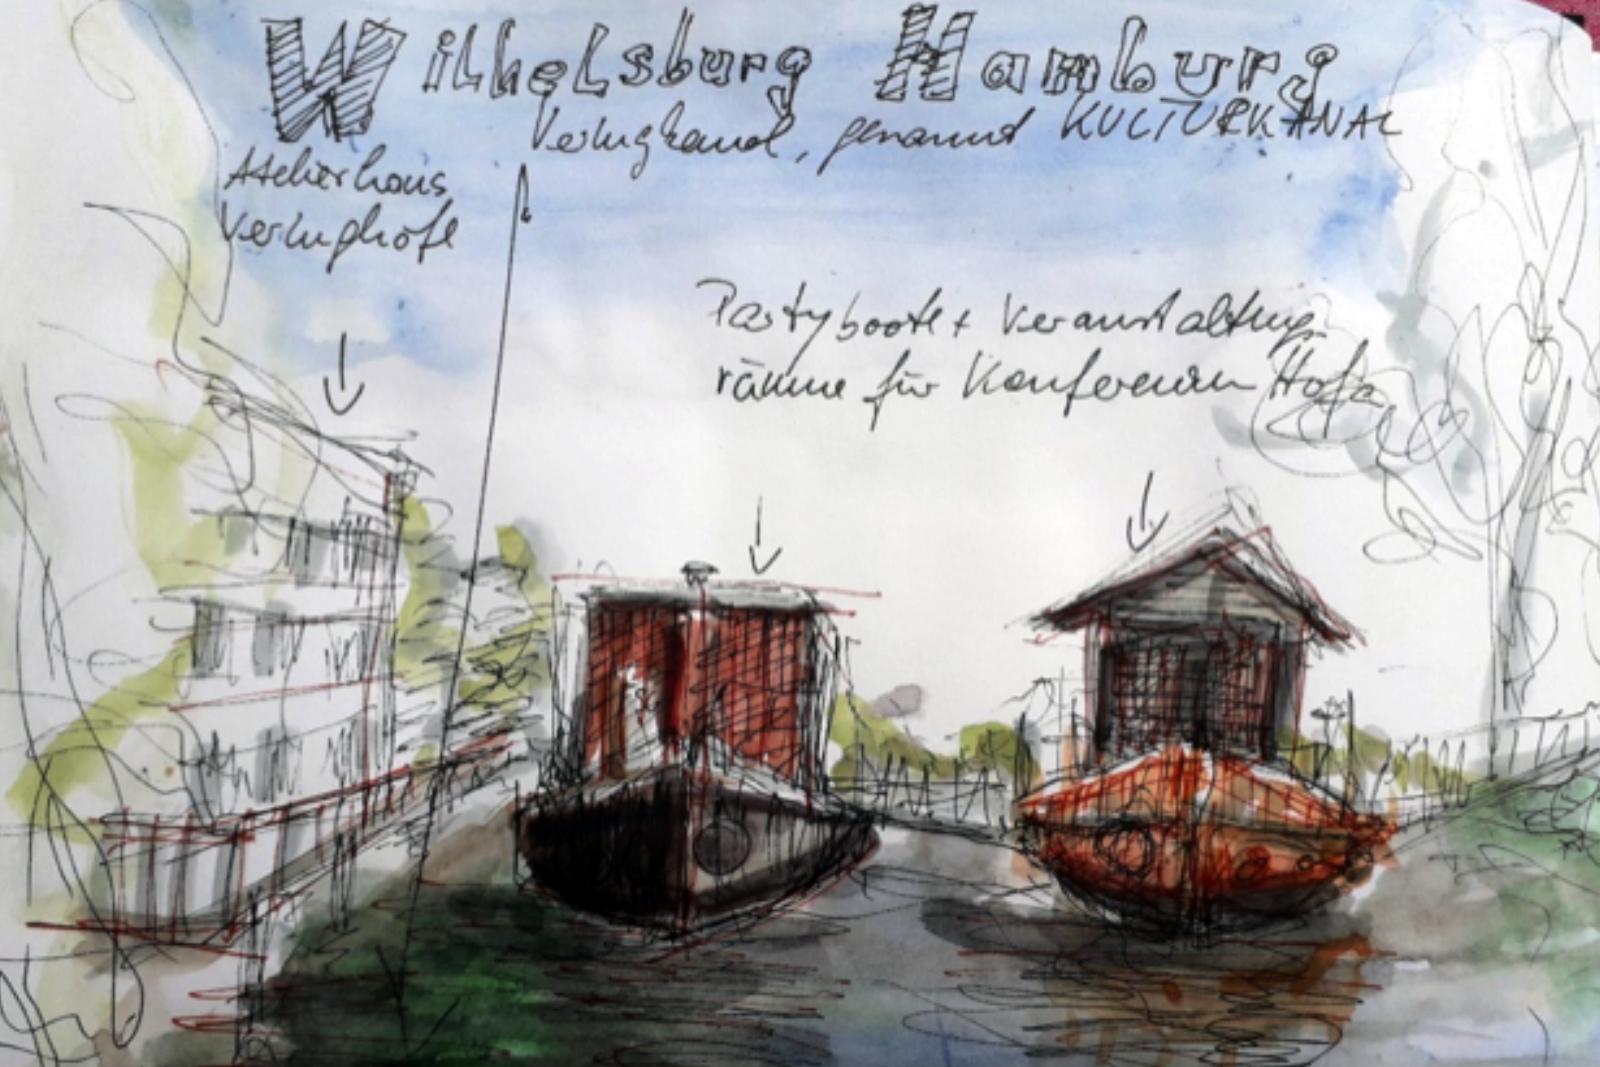 Wilhelsburg Hamburg
Veringkanal, genannt KULTURKANAL
Atelierhaus
Veringhöfe
Partyboote + Veranstaltung
räume für Konferenzen